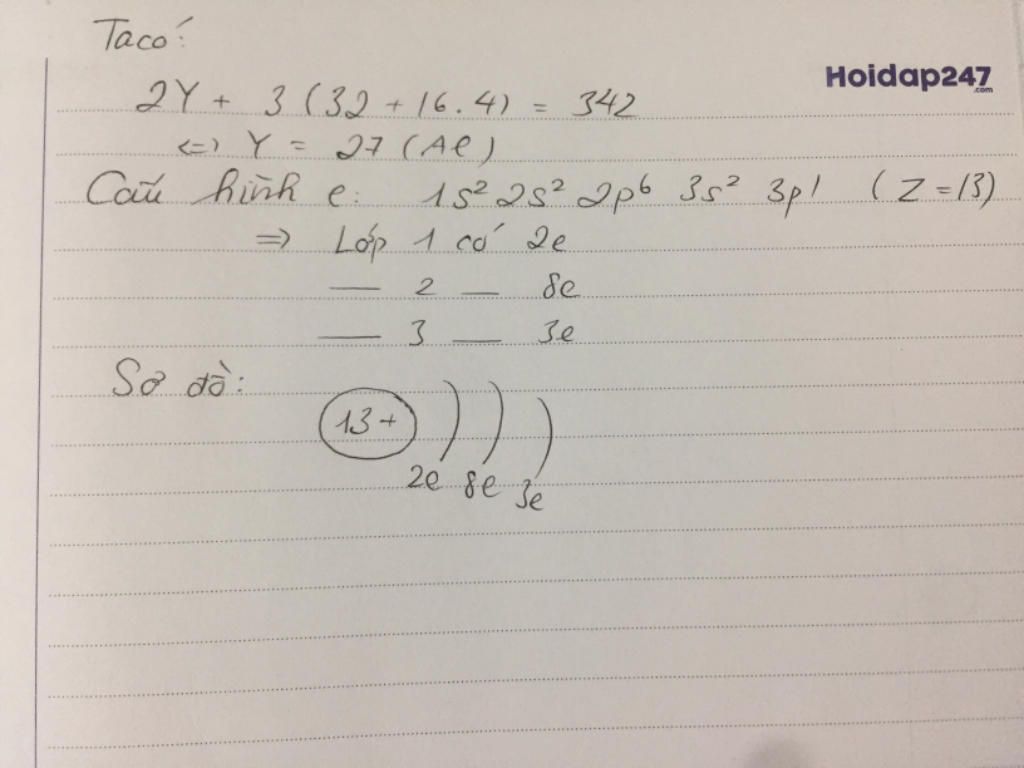 Ta có:
Hoidap247
.com
2Y + 3 (32 + 16.4) = 342
<=> Y = 27 (Al)
Cấu hình e: 1s² 2s² 2p⁶ 3s² 3p¹ (Z = 13)
=> Lớp 1 có 2e
— 2 — 8e
— 3 — 3e
Sơ đồ:
13+
2e 8e 3e